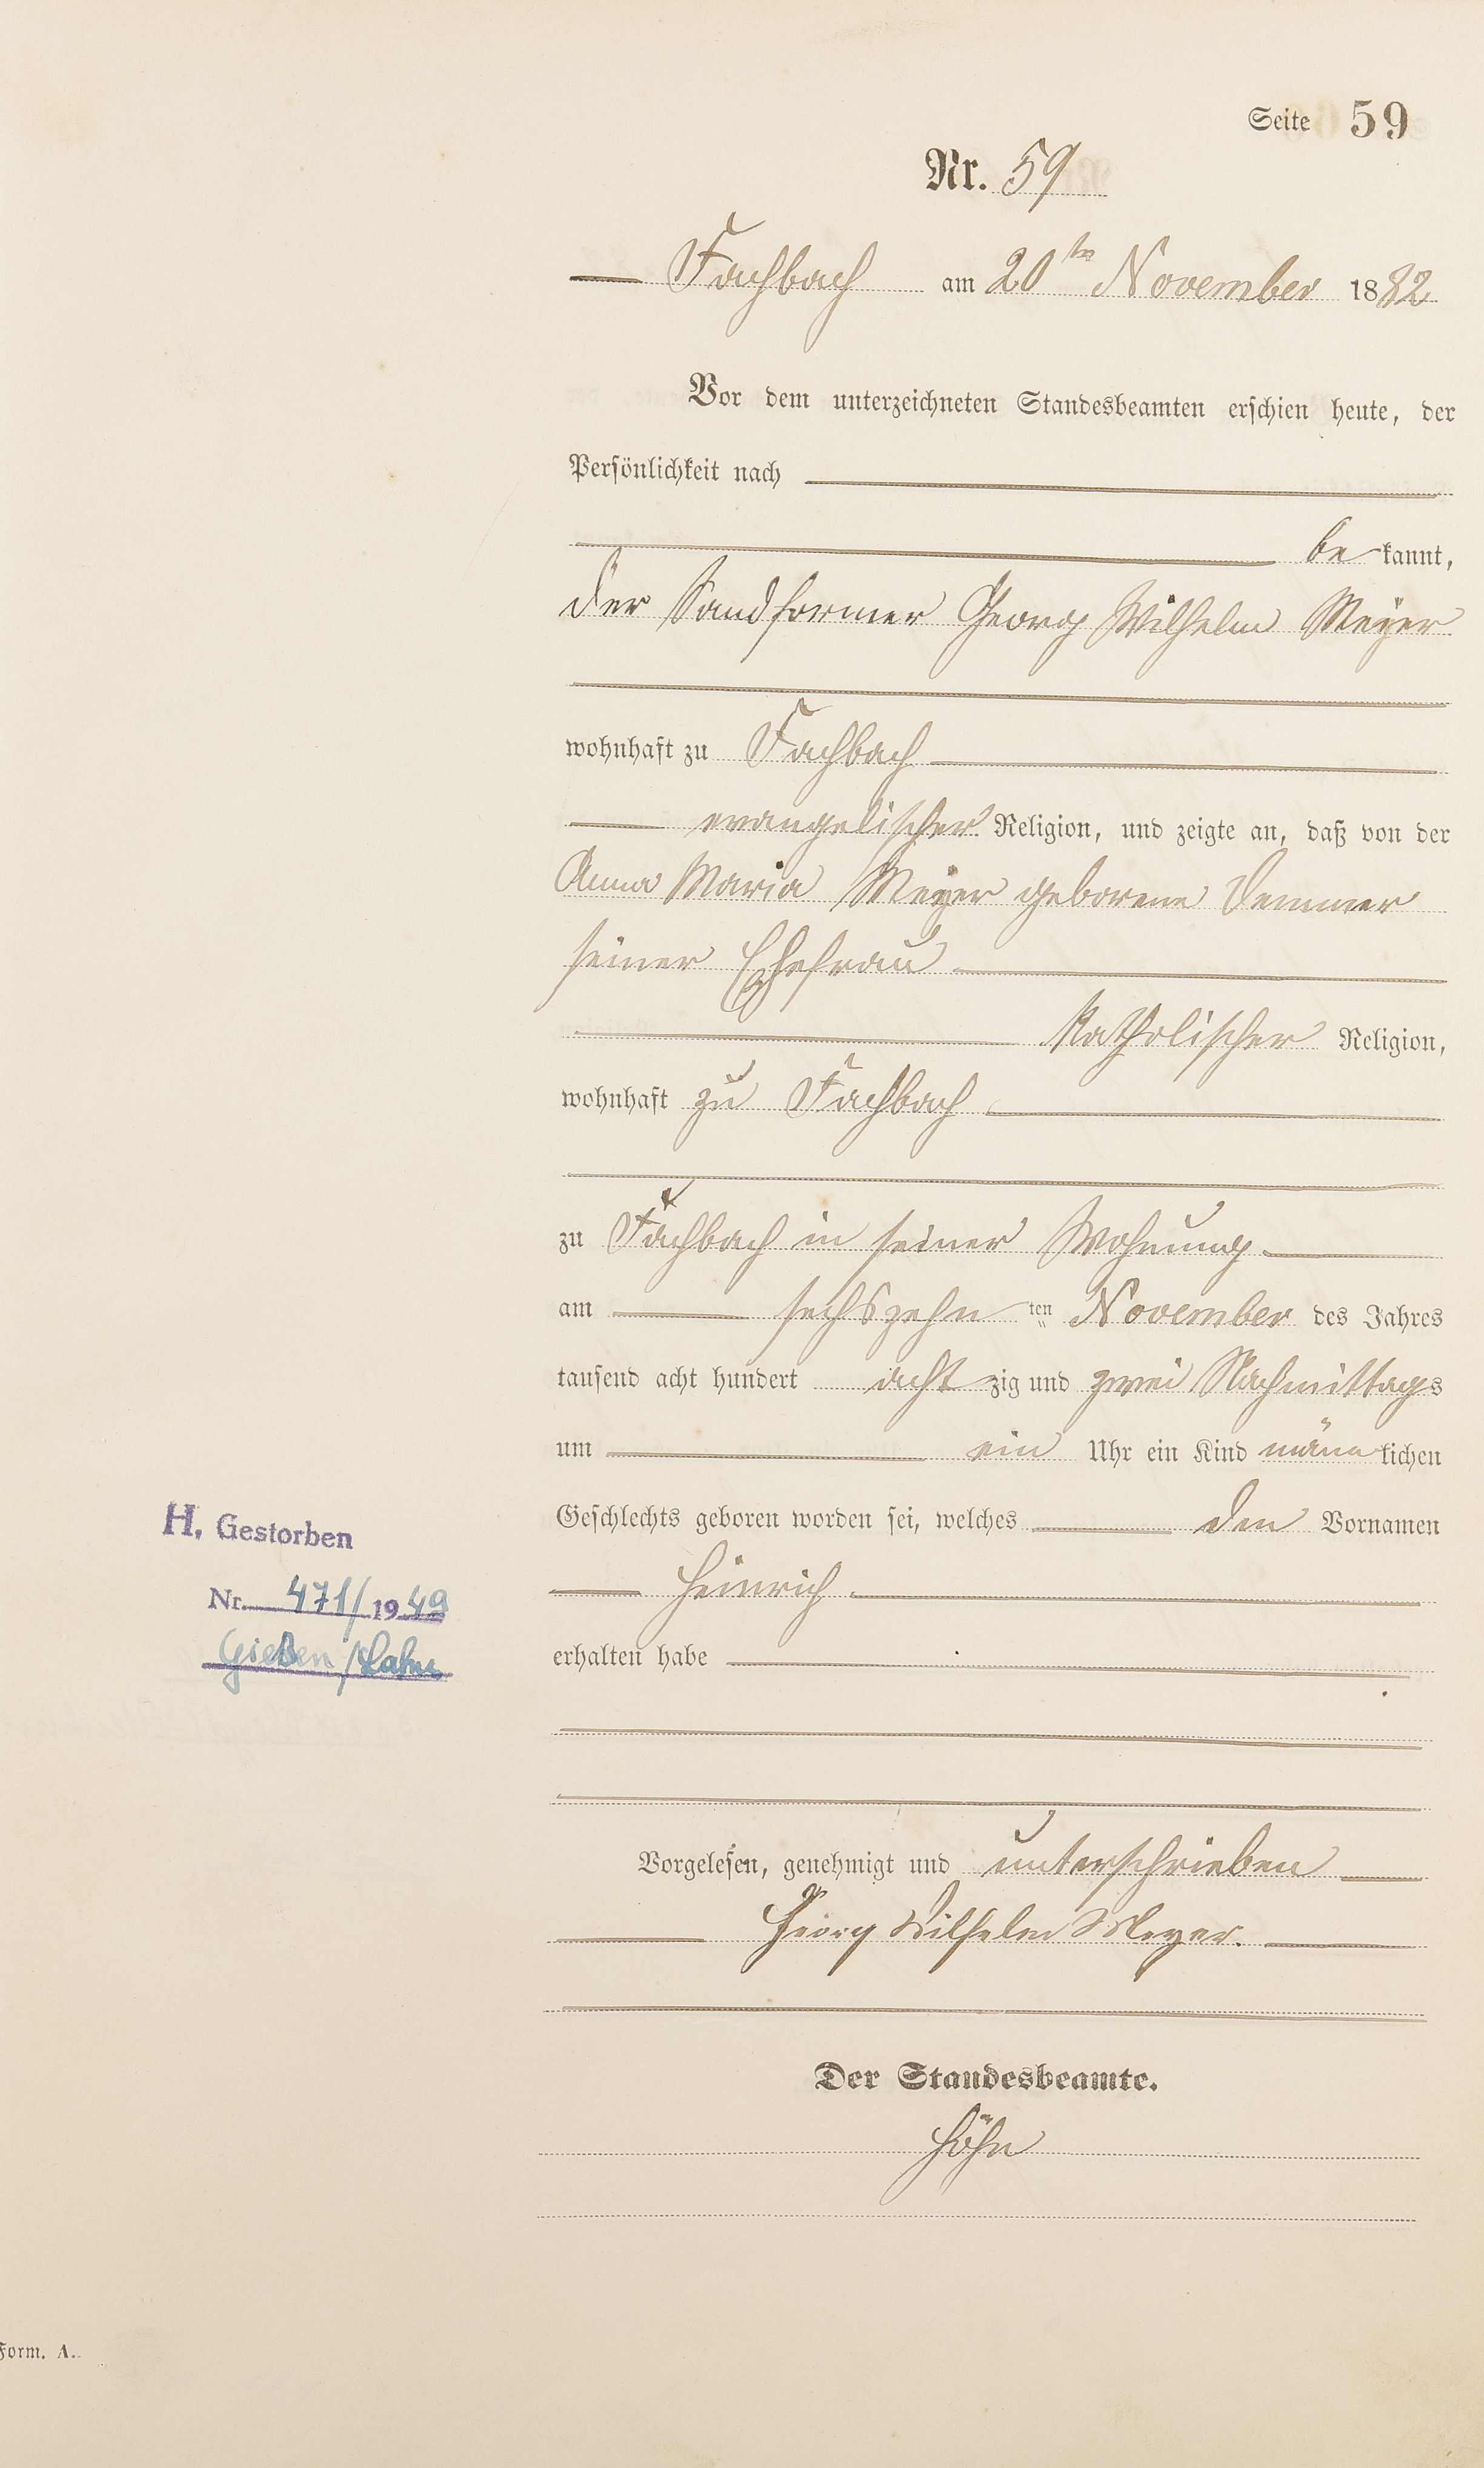 Seite 59
Nr. 59
Fachbach am 20ten November 1882
Vor dem unterzeichneten Standesbeamten erschien heute, der
Persönlichkeit nach
be kannt,
der Sandformer Georg Wilhelm Meyer
wohnhaft zu Fachbach
evangelischer Religion, und zeigte an, daß von der
Anna Maria Meyer geborene Demmer
seiner Ehefrau
katholischer Religion,
wohnhaft zu Fachbach
zu Fachbach in seiner Wohnung
am sechszehn ten November des Jahres
tausend acht hundert acht zig und zwei Nachmittags
um ein Uhr ein Kind männ lichen
Geschlechts geboren worden sei, welches den Vornamen
H. Gestorben
Heinrich.
Nr. 471/1949
Gießen/Lahn
erhalten habe
Vorgelesen, genehmigt und unterschrieben
Georg Wilhelm Meyer.
Der Standesbeamte.
Höhn
Form. A.